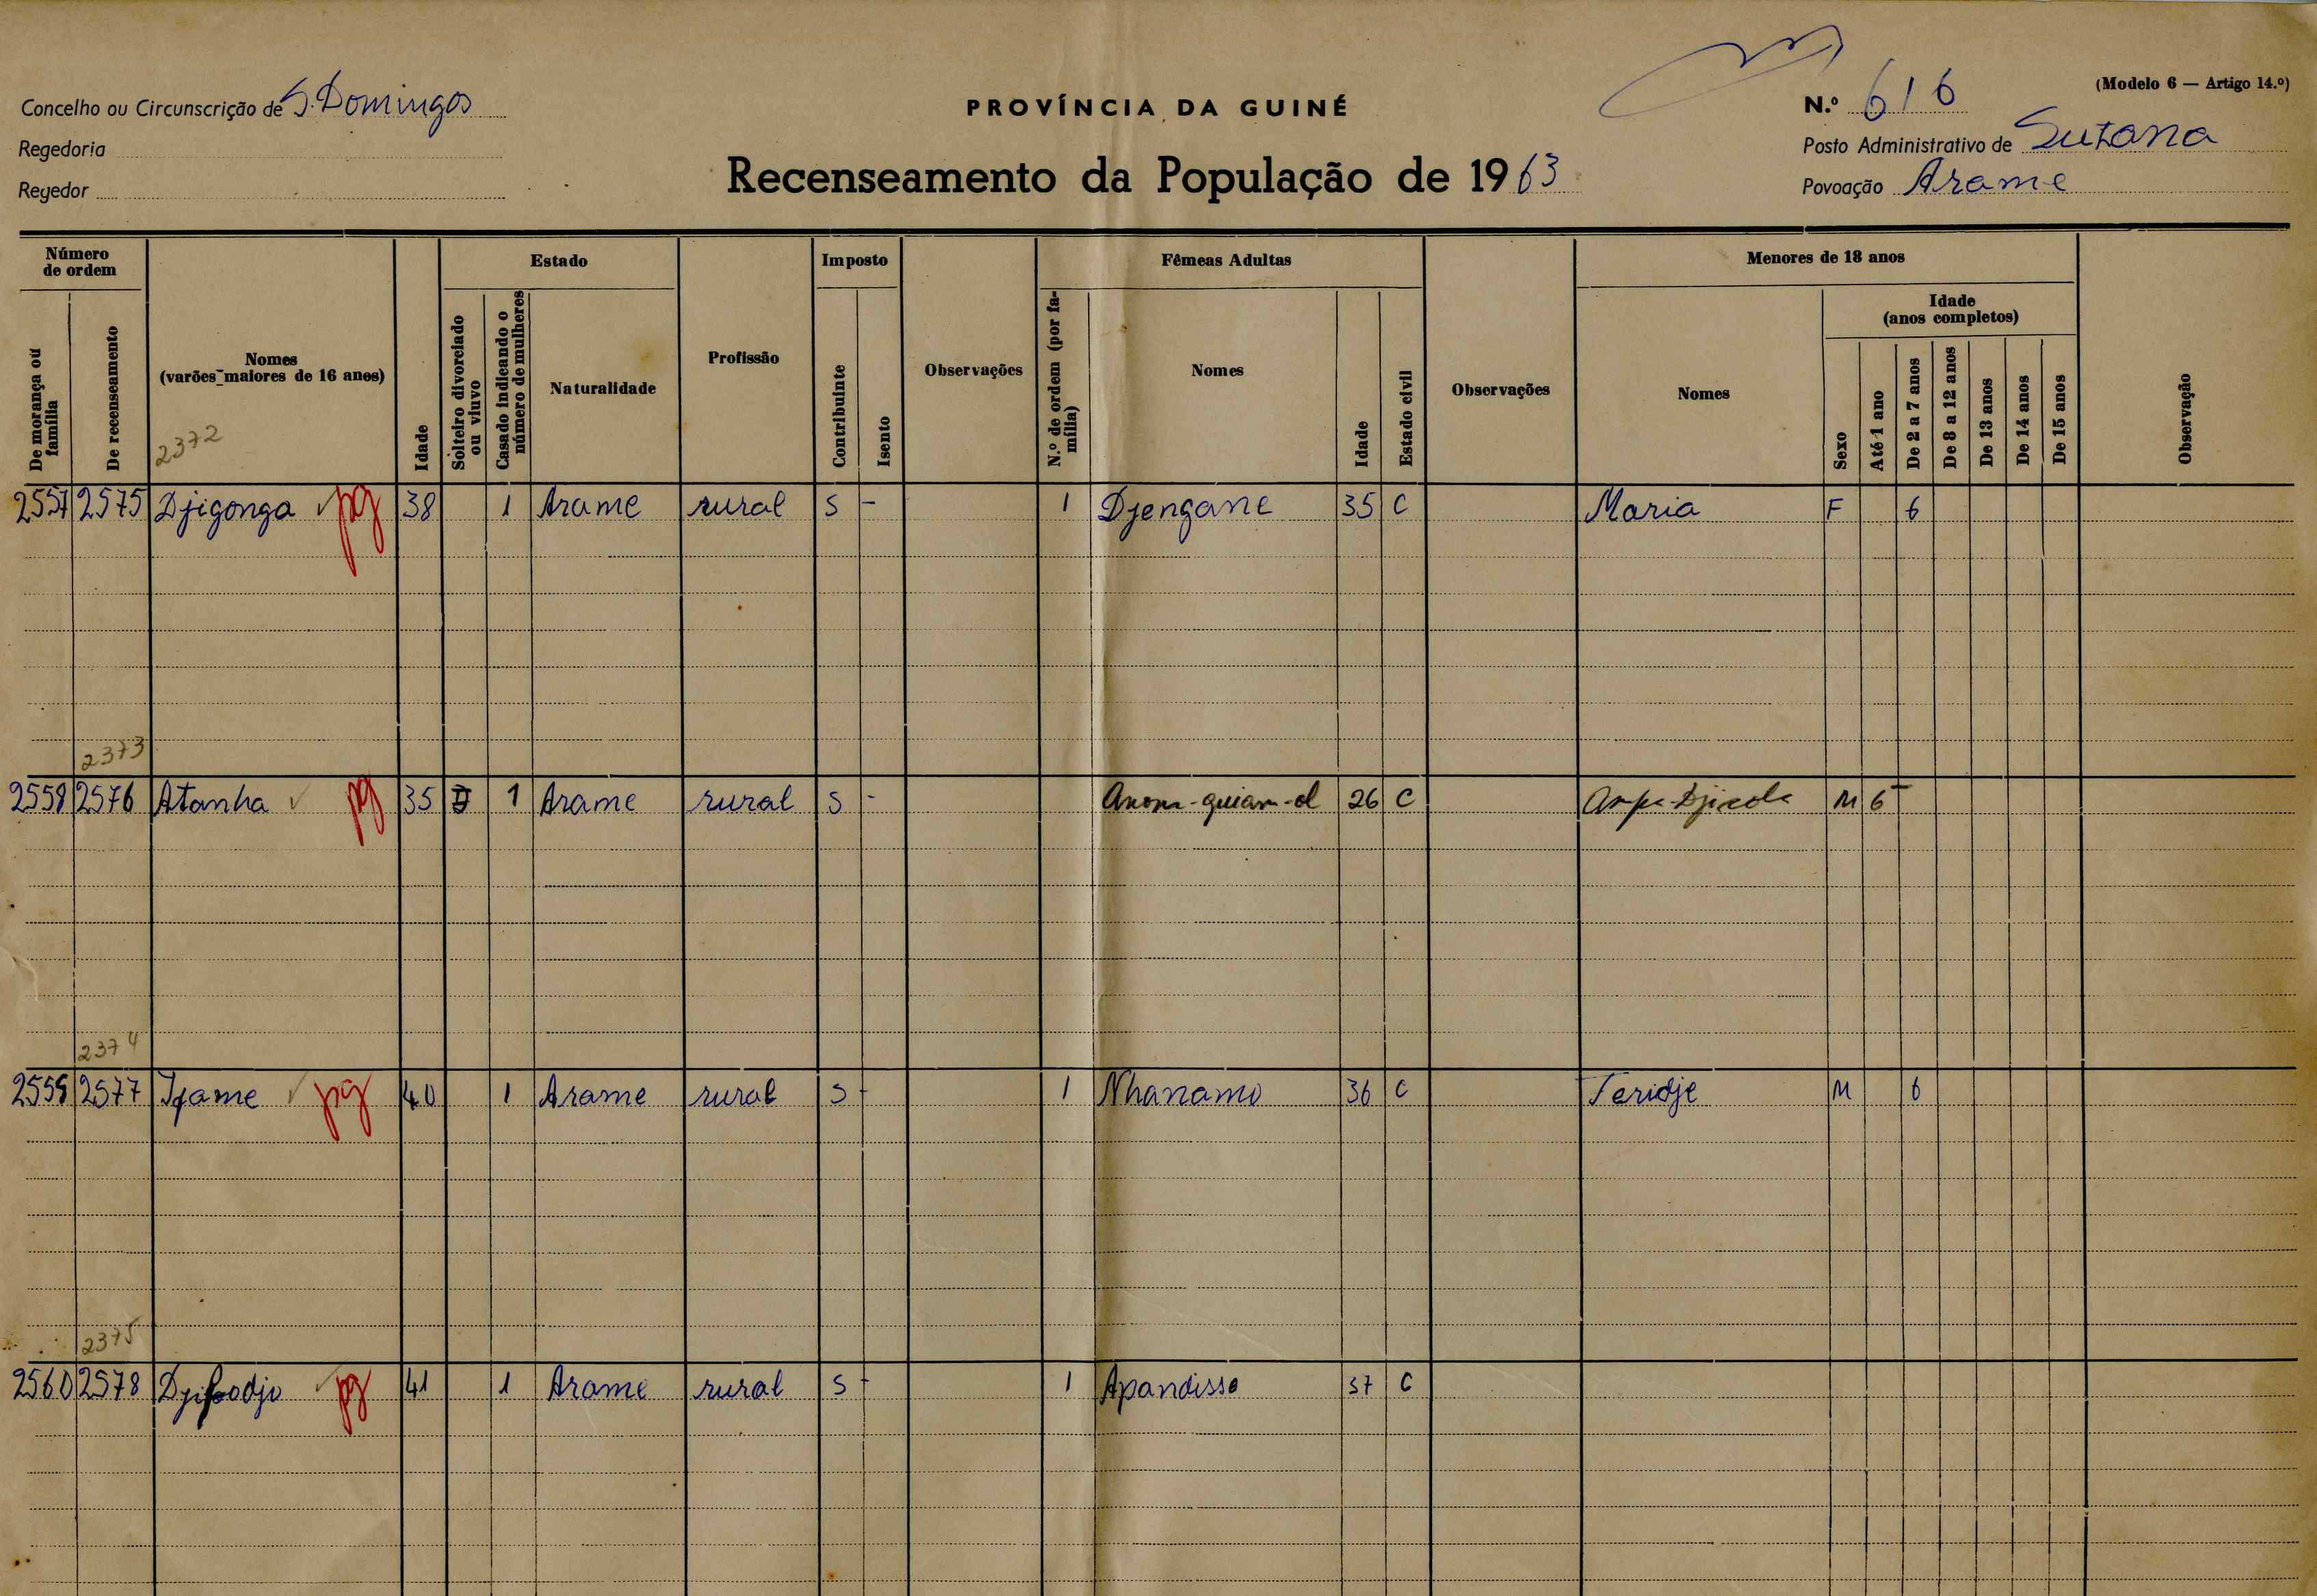 (Modelo 6 — Artigo 14.º)
Concelho ou Circunscrição de S. Domingos
PROVÍNCIA DA GUINÉ
N.º 616
Regedoria
Posto Administrativo de Suzana
Regedor
Recenseamento da População de 1963
Povoação Arame
Número de ordem
De morança ou família
De recenseamento
Nomes
(varões maiores de 16 anos)
2372
Idade
Estado
Solteiro divorciado ou viuvo
Casado indicando o número de mulheres
Naturalidade
Profissão
Imposto
Contribuinte
Isento
Observações
Fêmeas Adultas
N.º de ordem (por família)
Nomes
Idade
Estado civil
Observações
Menores de 18 anos
Nomes
Idade
(anos completos)
Sexo
Até 1 ano
De 2 a 7 anos
De 8 a 12 anos
De 13 anos
De 14 anos
De 15 anos
Observação
2557 2575 Djigonga pg 38 1 Arame rural S - 1 Djengane 35 C Maria F 6
2373
2558 2576 Atanha pg 35 1 Arame rural S - 26 C M 6
2374
2559 2577 pg 40 1 Arame rural S - 1 Nhanamo 36 C Teridje M 6
2375
2560 2578 pg 41 1 Arame rural S - 1 Apandisso 37 C